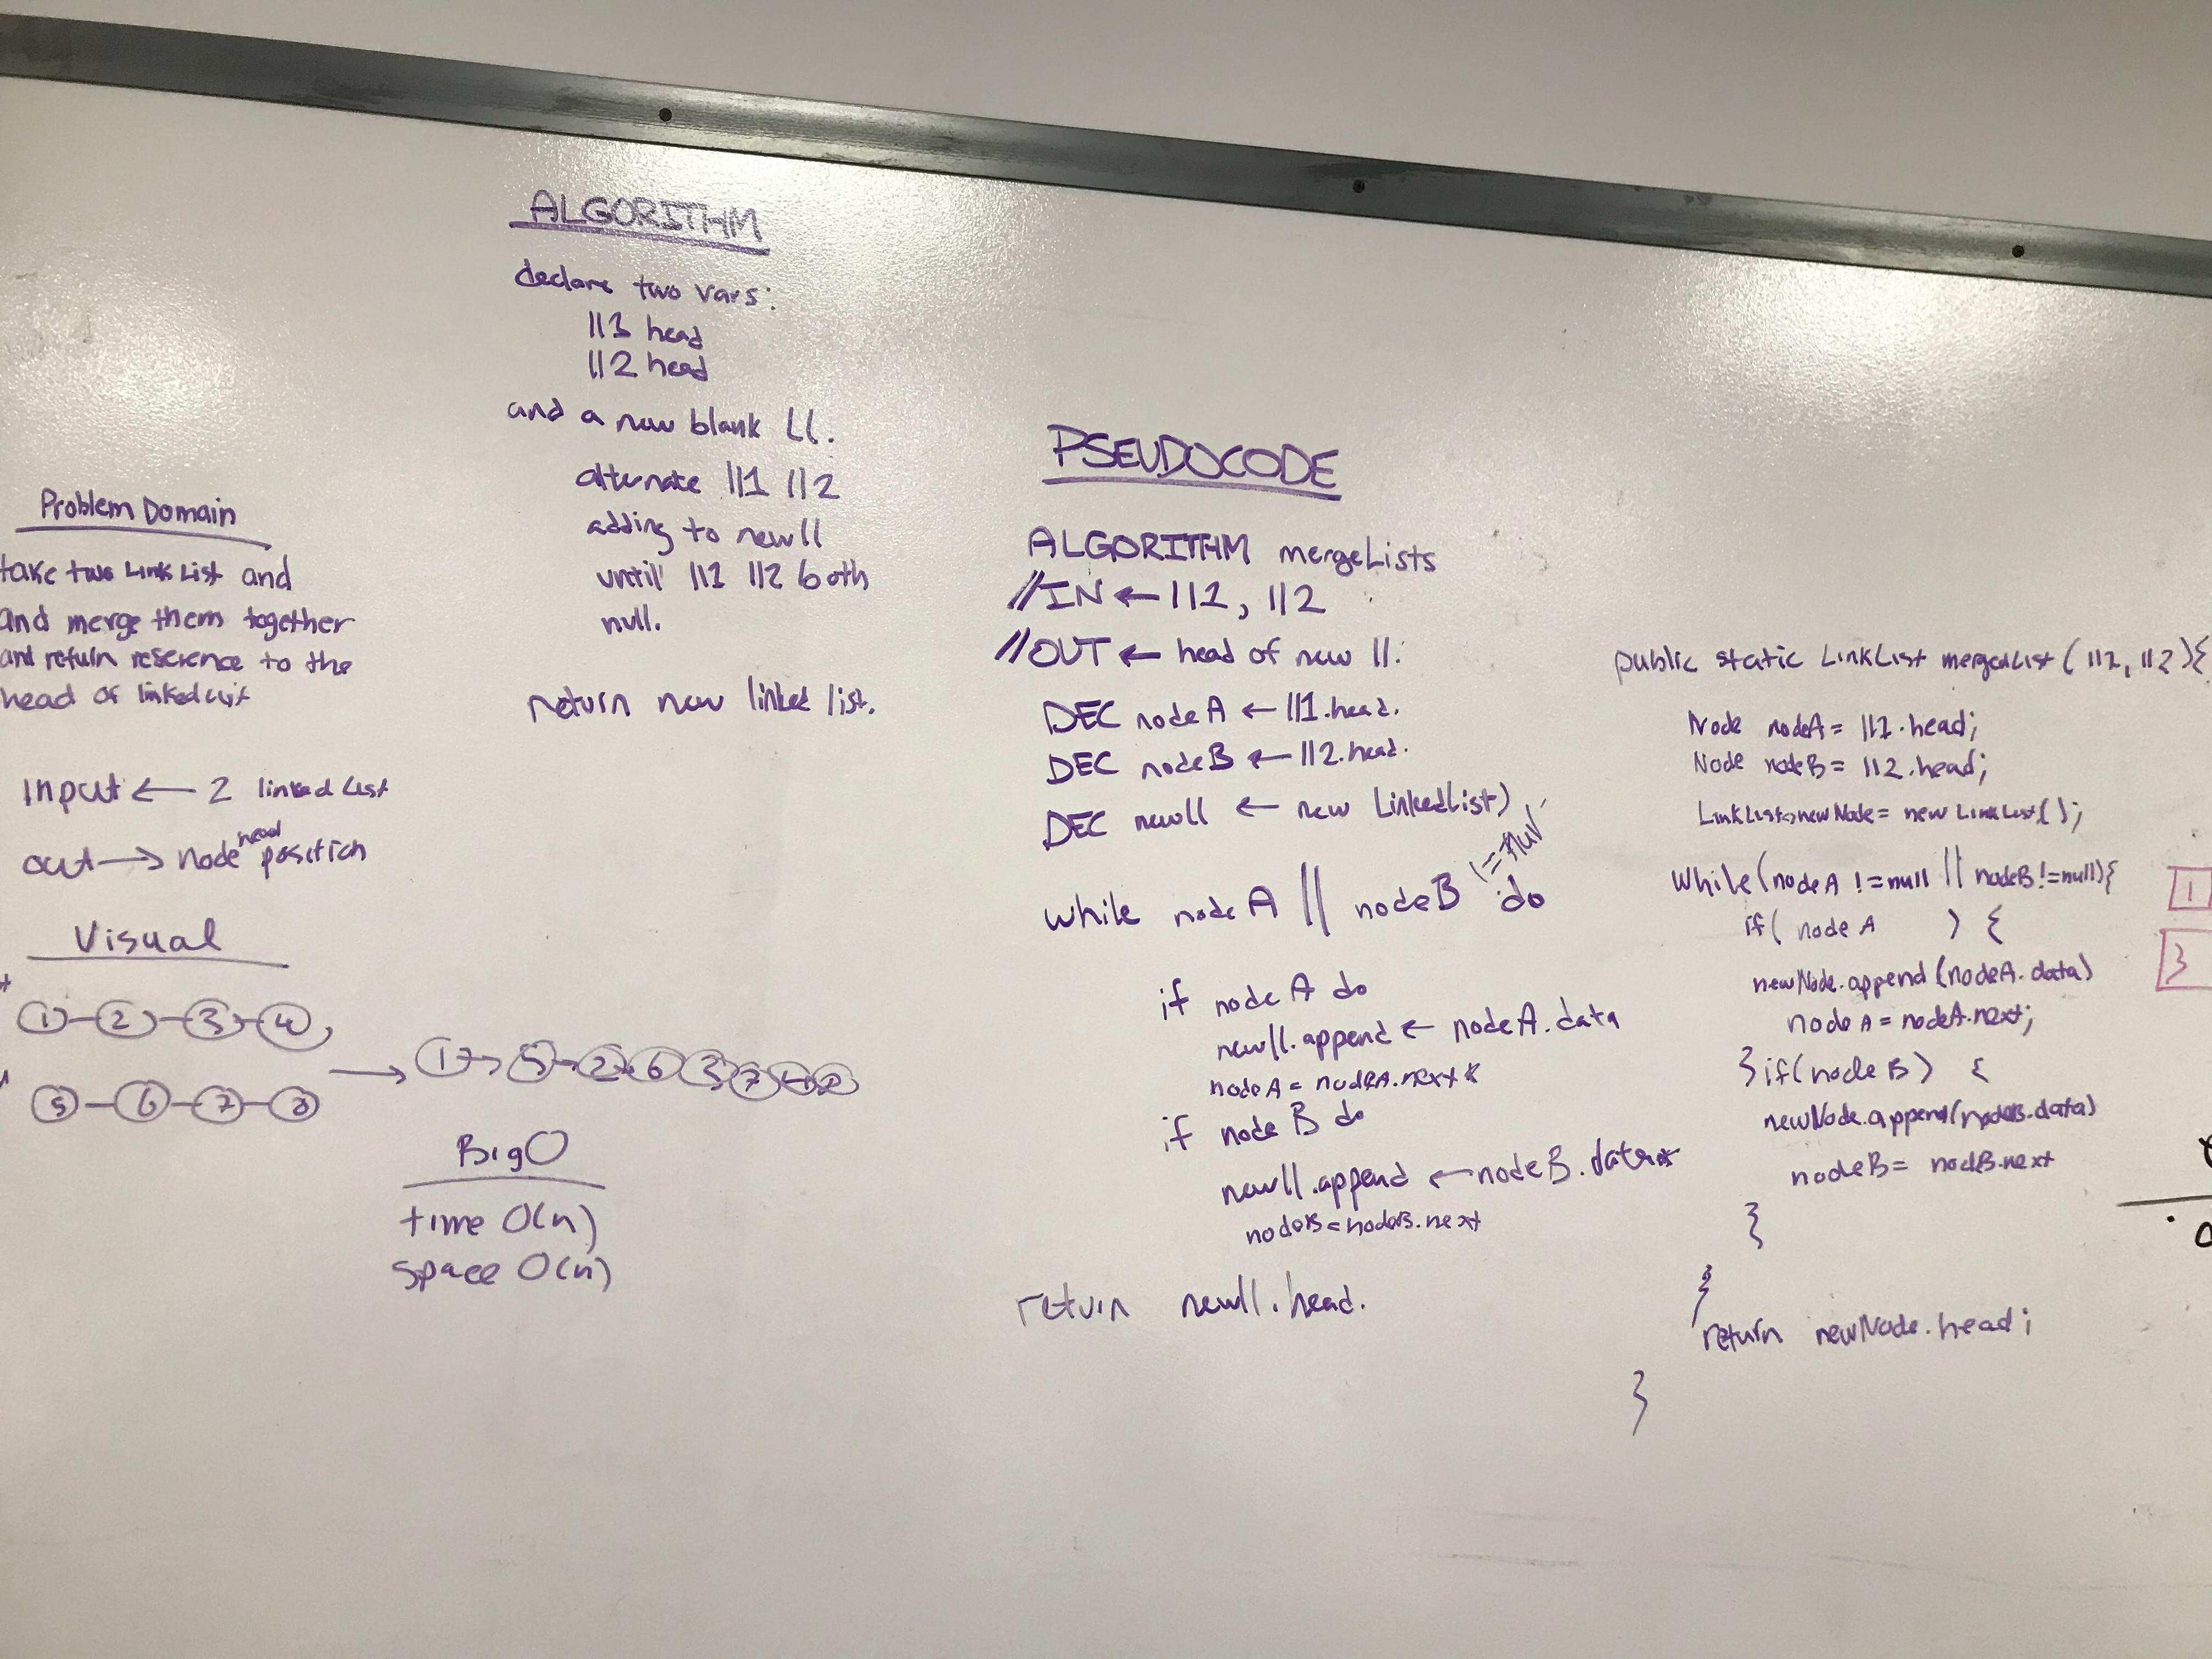 Problem Domain
take two Link List and
and merge them together
and return reference to the
head of linked list
Input ← 2 linked List
out → node head position
Visual
1 2 3 4
5 6 7 8
→ 1 → 5 2 6 3 7 4 8
BigO
time O(n)
space O(n)
ALGORITHM
declare two vars:
ll1 head
ll2 head
and a new blank LL.
alternate ll1 ll2
adding to newll
until ll1 ll2 both
null.
return new linked list.
PSEUDOCODE
ALGORITHM mergeLists
//IN ← ll1, ll2
//OUT ← head of new ll.
DEC nodeA ← ll1.head.
DEC nodeB ← ll2.head.
DEC newll ← new LinkedList)
while nodeA || nodeB != null do
if nodeA do
newll.append ← nodeA.data
nodeA = nodeA.next
if nodeB do
newll.append ← nodeB.data
nodeB = nodeB.next
return newll.head.
public static LinkList mergeList (ll1, ll2){
Node nodeA = ll1.head;
Node nodeB = ll2.head;
LinkList newNode = new LinkList();
While(nodeA != null || nodeB != null){
if( node A ) {
newNode.append (nodeA.data)
node A = nodeA.next;
}if(node B) {
newNode.append(nodeB.data)
nodeB = nodeB.next
}
}
return newNode.head;
}
1
3